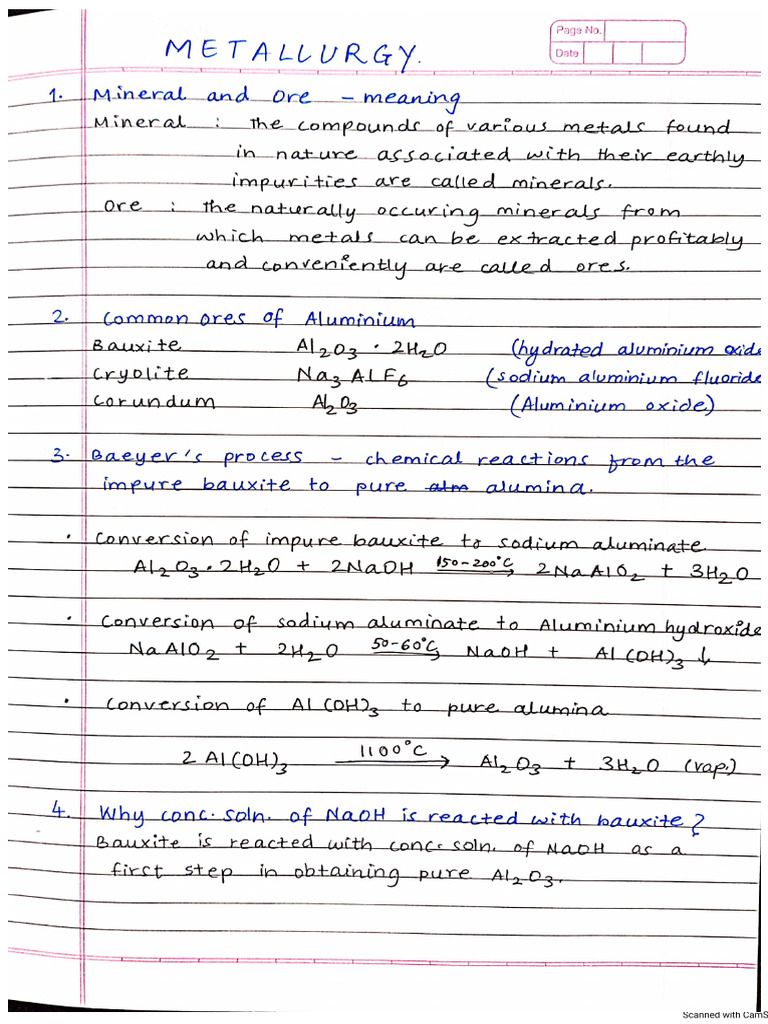 METALLURGY.
Page No.
Date
1. Mineral and Ore – meaning
Mineral : The compounds of various metals found
in nature associated with their earthly
impurities are called minerals.
Ore : The naturally occuring minerals from
which metals can be extracted profitably
and conveniently are called ores.
2. Common ores of Aluminium
Bauxite Al₂O₃·2H₂O (hydrated aluminium oxide
Cryolite Na₃AlF₆ (sodium aluminium fluoride
Corundum Al₂O₃ (Aluminium oxide)
3. Baeyer's process – chemical reactions from the
impure bauxite to pure alm alumina.
• Conversion of impure bauxite to sodium aluminate
Al₂O₃·2H₂O + 2NaOH 150-200°C → 2NaAlO₂ + 3H₂O
• Conversion of sodium aluminate to Aluminium hydroxide
NaAlO₂ + 2H₂O 50-60°C → NaOH + Al(OH)₃ ↓
• Conversion of Al(OH)₃ to pure alumina
2Al(OH)₃ 1100°C → Al₂O₃ + 3H₂O (vap.)
4. Why conc. soln. of NaOH is reacted with bauxite?
Bauxite is reacted with conc. soln. of NaOH as a
first step in obtaining pure Al₂O₃.
Scanned with CamS